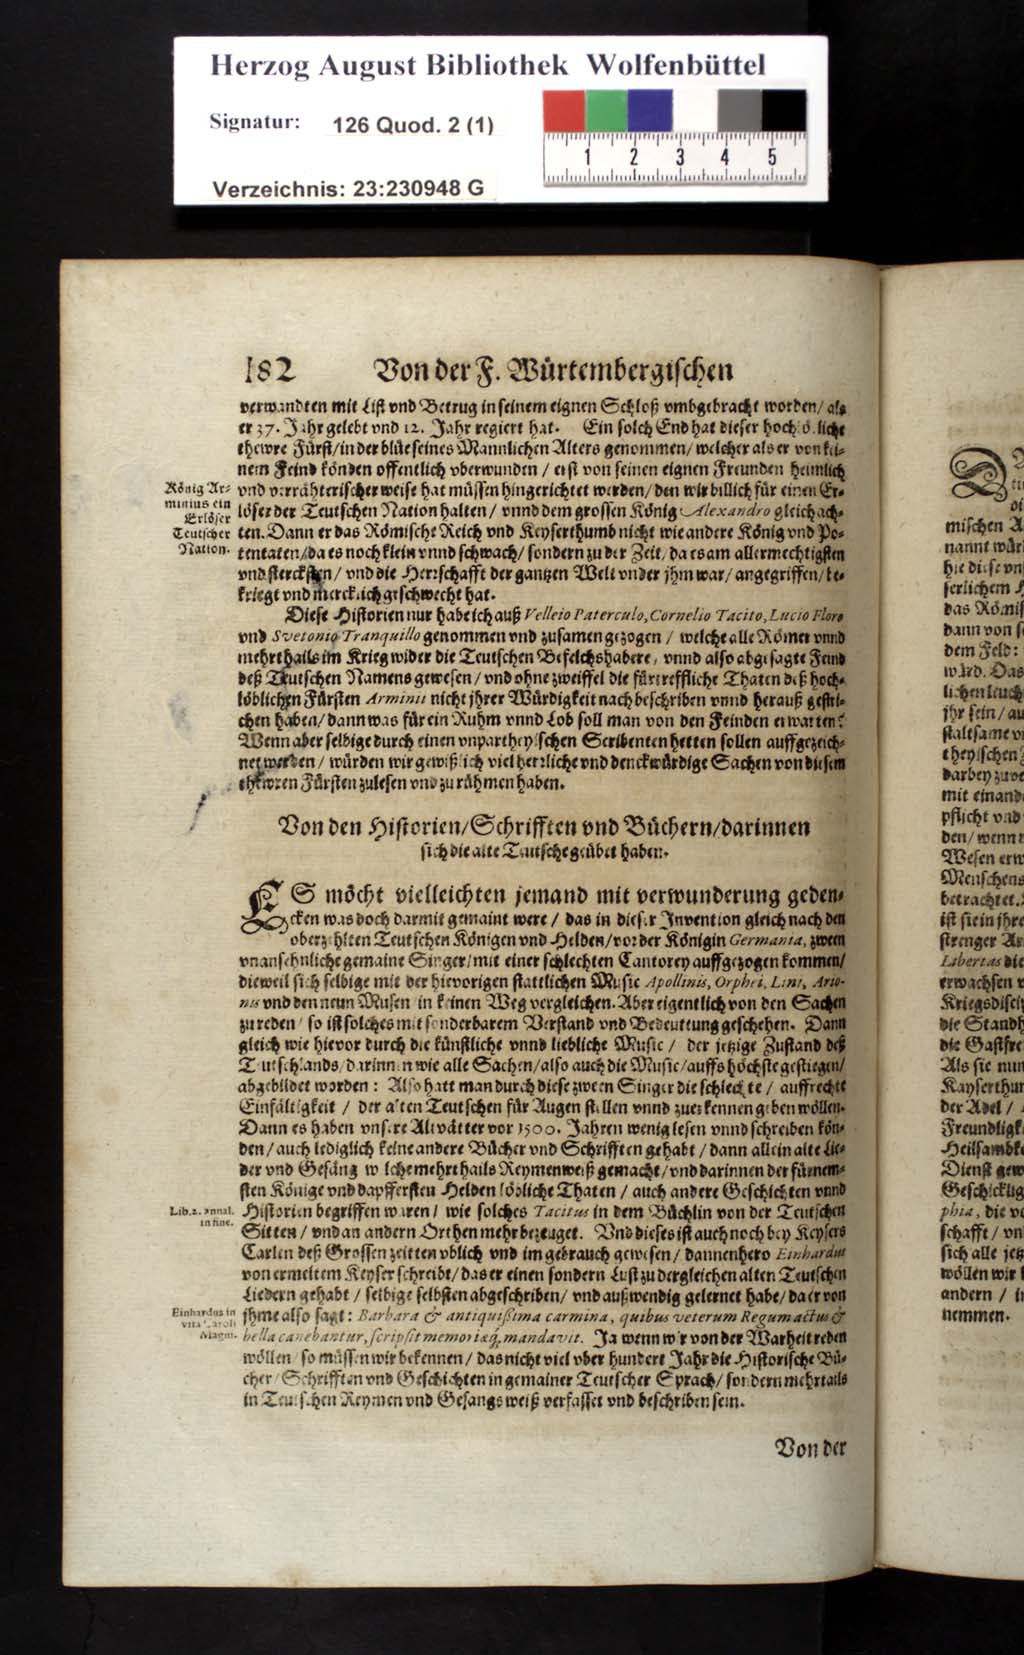 Herzog August Bibliothek Wolfenbüttel
Signatur: 126 Quod. 2 (1)
1 2 3 4 5
Verzeichnis: 23:230948 G
182 Von der F. Würtembergischen
verwandten mit List vnd Betrug in seinem eignen Schloß vmbgebracht worden/ als
er 37. Jahr gelebt vnd 12. Jahr regiert hat. Ein solch End hat dieser hochlöbliche
thewre Fürst/ in der blüe seines Mannlichen Alters genommen/ welcher als er von kei-
nem Feind könden offentlich vberwunden / erst von seinen eignen Freunden heimlich
vnd verrähterischer weise hat müssen hingerichtet werden/ den wir billich für einen Er-
löser der Teutschen Nation halten/ vnnd dem grossen König Alexandro gleich ach-
ten. Dann er das Römische Reich vnd Keyserthumb nicht wie andere König vnd Po-
tentaten/ da es noch klein vnnd schwach/ sondern zu der Zeit/ da es am allermechtigsten
vnd stercksten/ vnd die Herrschafft der gantzen Welt vnder jhm war/ angegriffen/ be-
kriegt vnd mercklich geschwecht hat.
König Ar-
minius ein
Erlöser
Teutscher
Nation.
Diese Historien nur habe ich auß Velleio Paterculo, Cornelio Tacito, Lucio Floro
vnd Svetonio Tranquillo genommen vnd zusamen gezogen / welche alle Römer vnnd
mehrthails im Krieg wider die Teutschen Befelchshabere, vnnd also abgesagte Feind
deß Teutschen Namens gewesen/ vnd ohne zweiffel die fürtreffliche Thaten deß hoch-
löblichen Fürsten Arminii nicht jhrer Würdigkeit nach beschriben vnnd herauß gestri-
chen haben/ dann was für ein Ruhm vnnd Lob soll man von den Feinden erwarten?
Wenn aber selbige durch einen vnpartheyischen Scribenten hetten sollen auffgezeich-
net werden / würden wir gewißlich viel herrliche vnd denckwürdige Sachen von diesem
thewren Fürsten zulesen vnd zu rühmen haben.
Von den Historien/ Schrifften vnd Büchern/ darinnen
sich die alte Teutsche geübet haben.
ES möcht vielleichten jemand mit verwunderung geden-
cken was doch darmit gemaint were / das in dieser Invention gleich nach den
oberzehlten Teutschen Königen vnd Helden/ vor der Königin Germania, zween
vnansehnliche gemaine Singer/ mit einer schlechten Cantorey auffgezogen kommen/
dieweil sich selbige mit der hievorigen stattlichen Music Apollinis, Orphei, Lini, Ario-
nis vnd den neun Musen in keinen Weg vergleichen. Aber eigentlich von den Sachen
zu reden/ so ist solches mit sonderbarem Verstand vnd Bedeuttung geschehen. Dann
gleich wie hievor durch die künstliche vnnd liebliche Music / der jetzige Zustand deß
Teutschlands/ darinnen wie alle Sachen/ also auch die Music/ auffs höchste gestiegen/
abgebildet worden: Also hatt man durch diese zween Singer die schlechte / auffrechte
Einfältigkeit / der alten Teutschen für Augen stellen vnnd zuerkennen geben wöllen.
Dann es haben vnsere Altvätter vor 1500. Jahren wenig lesen vnnd schreiben kön-
den/ auch lediglich keine andere Bücher vnd Schrifften gehabt / dann allein alte Lie-
der vnd Gesäng welche mehrthails Reymenweiß gemacht/ vnd darinnen der fürnem-
sten Könige vnd dapffersten Helden löbliche Thaten / auch andere Geschichten vnnd
Historien begriffen waren/ wie solches Tacitus in dem Büchlin von der Teutschen
Sitten / vnd an andern Orthen mehr bezeuget. Vnd dieses ist auch noch bey Keysers
Carlen deß Grossen zeitten vblich vnd im gebrauch gewesen/ dannenhero Einhardus
von ermeltem Keyser schreibt/ das er einen sondern Lust zu dergleichen alten Teutschen
Liedern gehabt / selbige selbsten abgeschriben/ vnd außwendig gelernet habe/ da er von
jhme also sagt: Barbara & antiquißima carmina, quibus veterum Regum actus &
bella canebantur, scripsit memoriæq; mandavit. Ja wenn wir von der Warheit reden
wöllen/ so müssen wir bekennen/ das nicht viel vber hundert Jahr die Historische Bü-
cher/ Schrifften vnd Geschichten in gemainer Teutscher Sprach/ sondern mehrtails
in Teutschen Reymen vnd Gesangs weiß verfasset vnd beschriben sein.
Lib. 2. annal.
in fine.
Einhardus in
vita Caroli
Magni.
Von der
mischen
nannt
ferlichem
dann von
dem Feld:
ward. Das
jhr sein/
staltsame
theyischen
mit einand
den/ wenn
Wesen
Menschens
betrachtet.
ist sie in jhre
strenger
Libertas die
erwachsen
die Gastfre
Als sie nun
der Adel /
Dienst
sich alle
wöllen wir
andern /
nemmen.